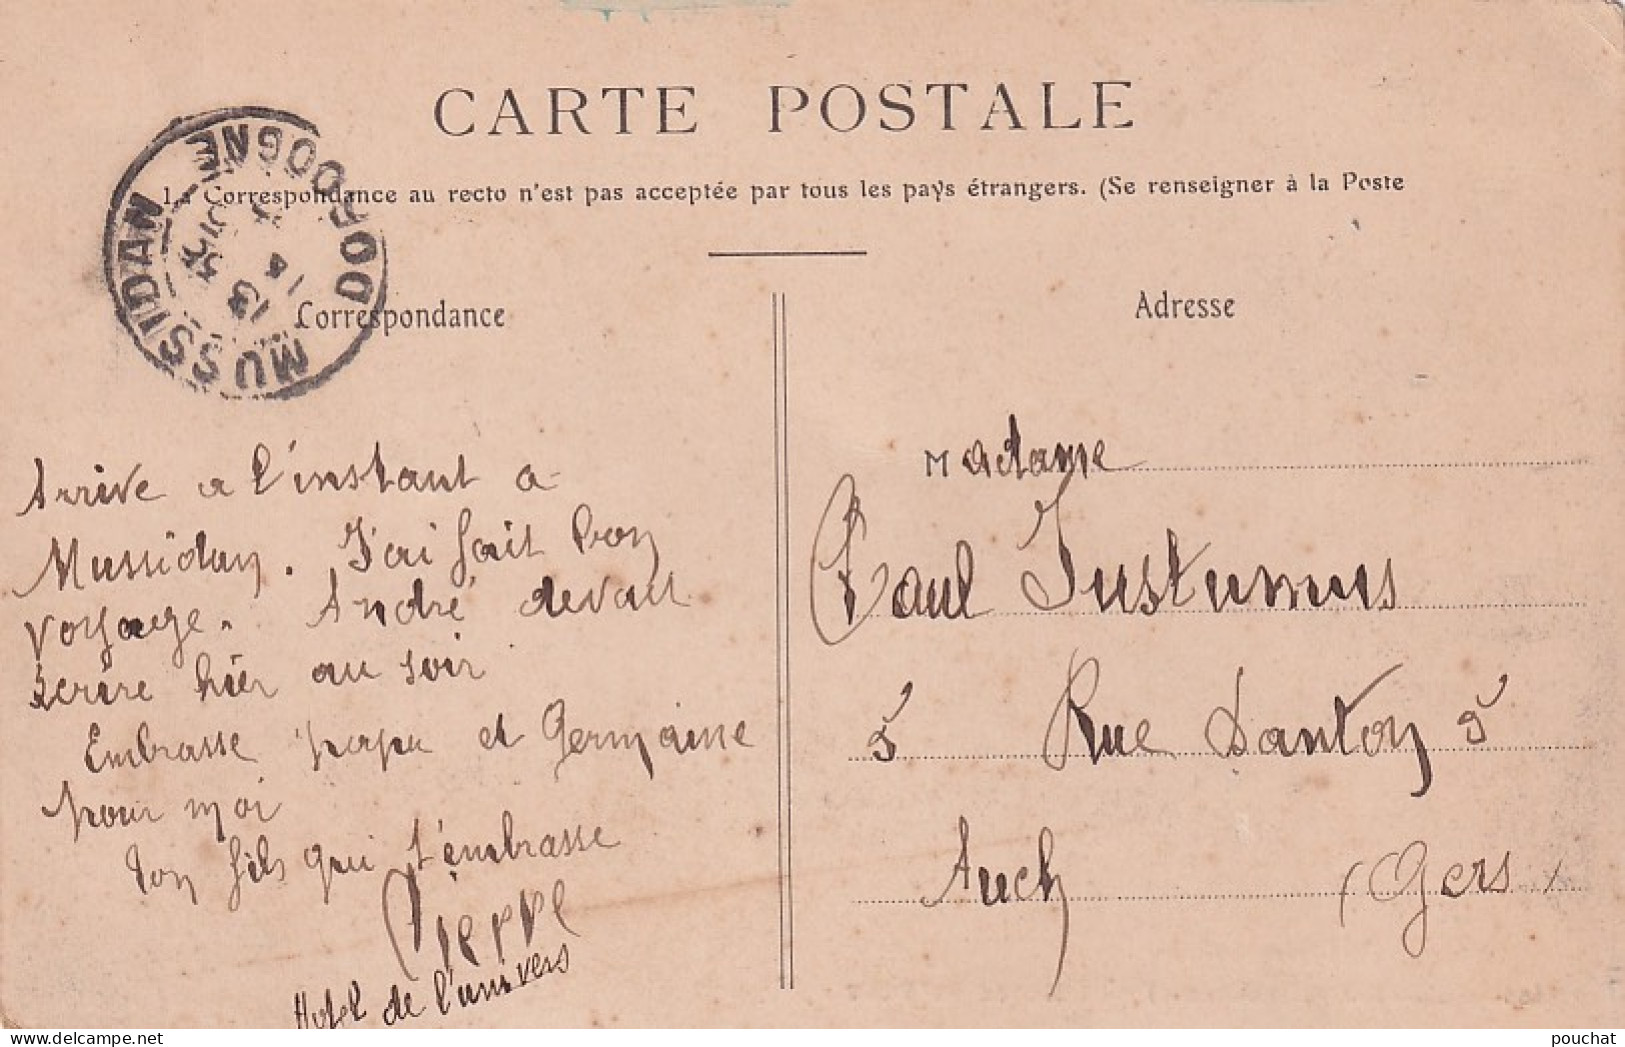 CARTE POSTALE
La Correspondance au recto n'est pas acceptée par tous les pays étrangers. (Se renseigner à la Poste
MUSSIDAN DORDOGNE
Correspondance
Arrive a l'instant a
Mussidan. J'ai fait bon
voyage. André devait
écrire hier au soir
Embrasse papa et Germaine
pour moi
Ton fils qui t'embrasse
Pierre
Hotel de l'univers
Adresse
Madame
Paul Justumus
5 Rue Danton 5
Auch (Gers)
pouchat